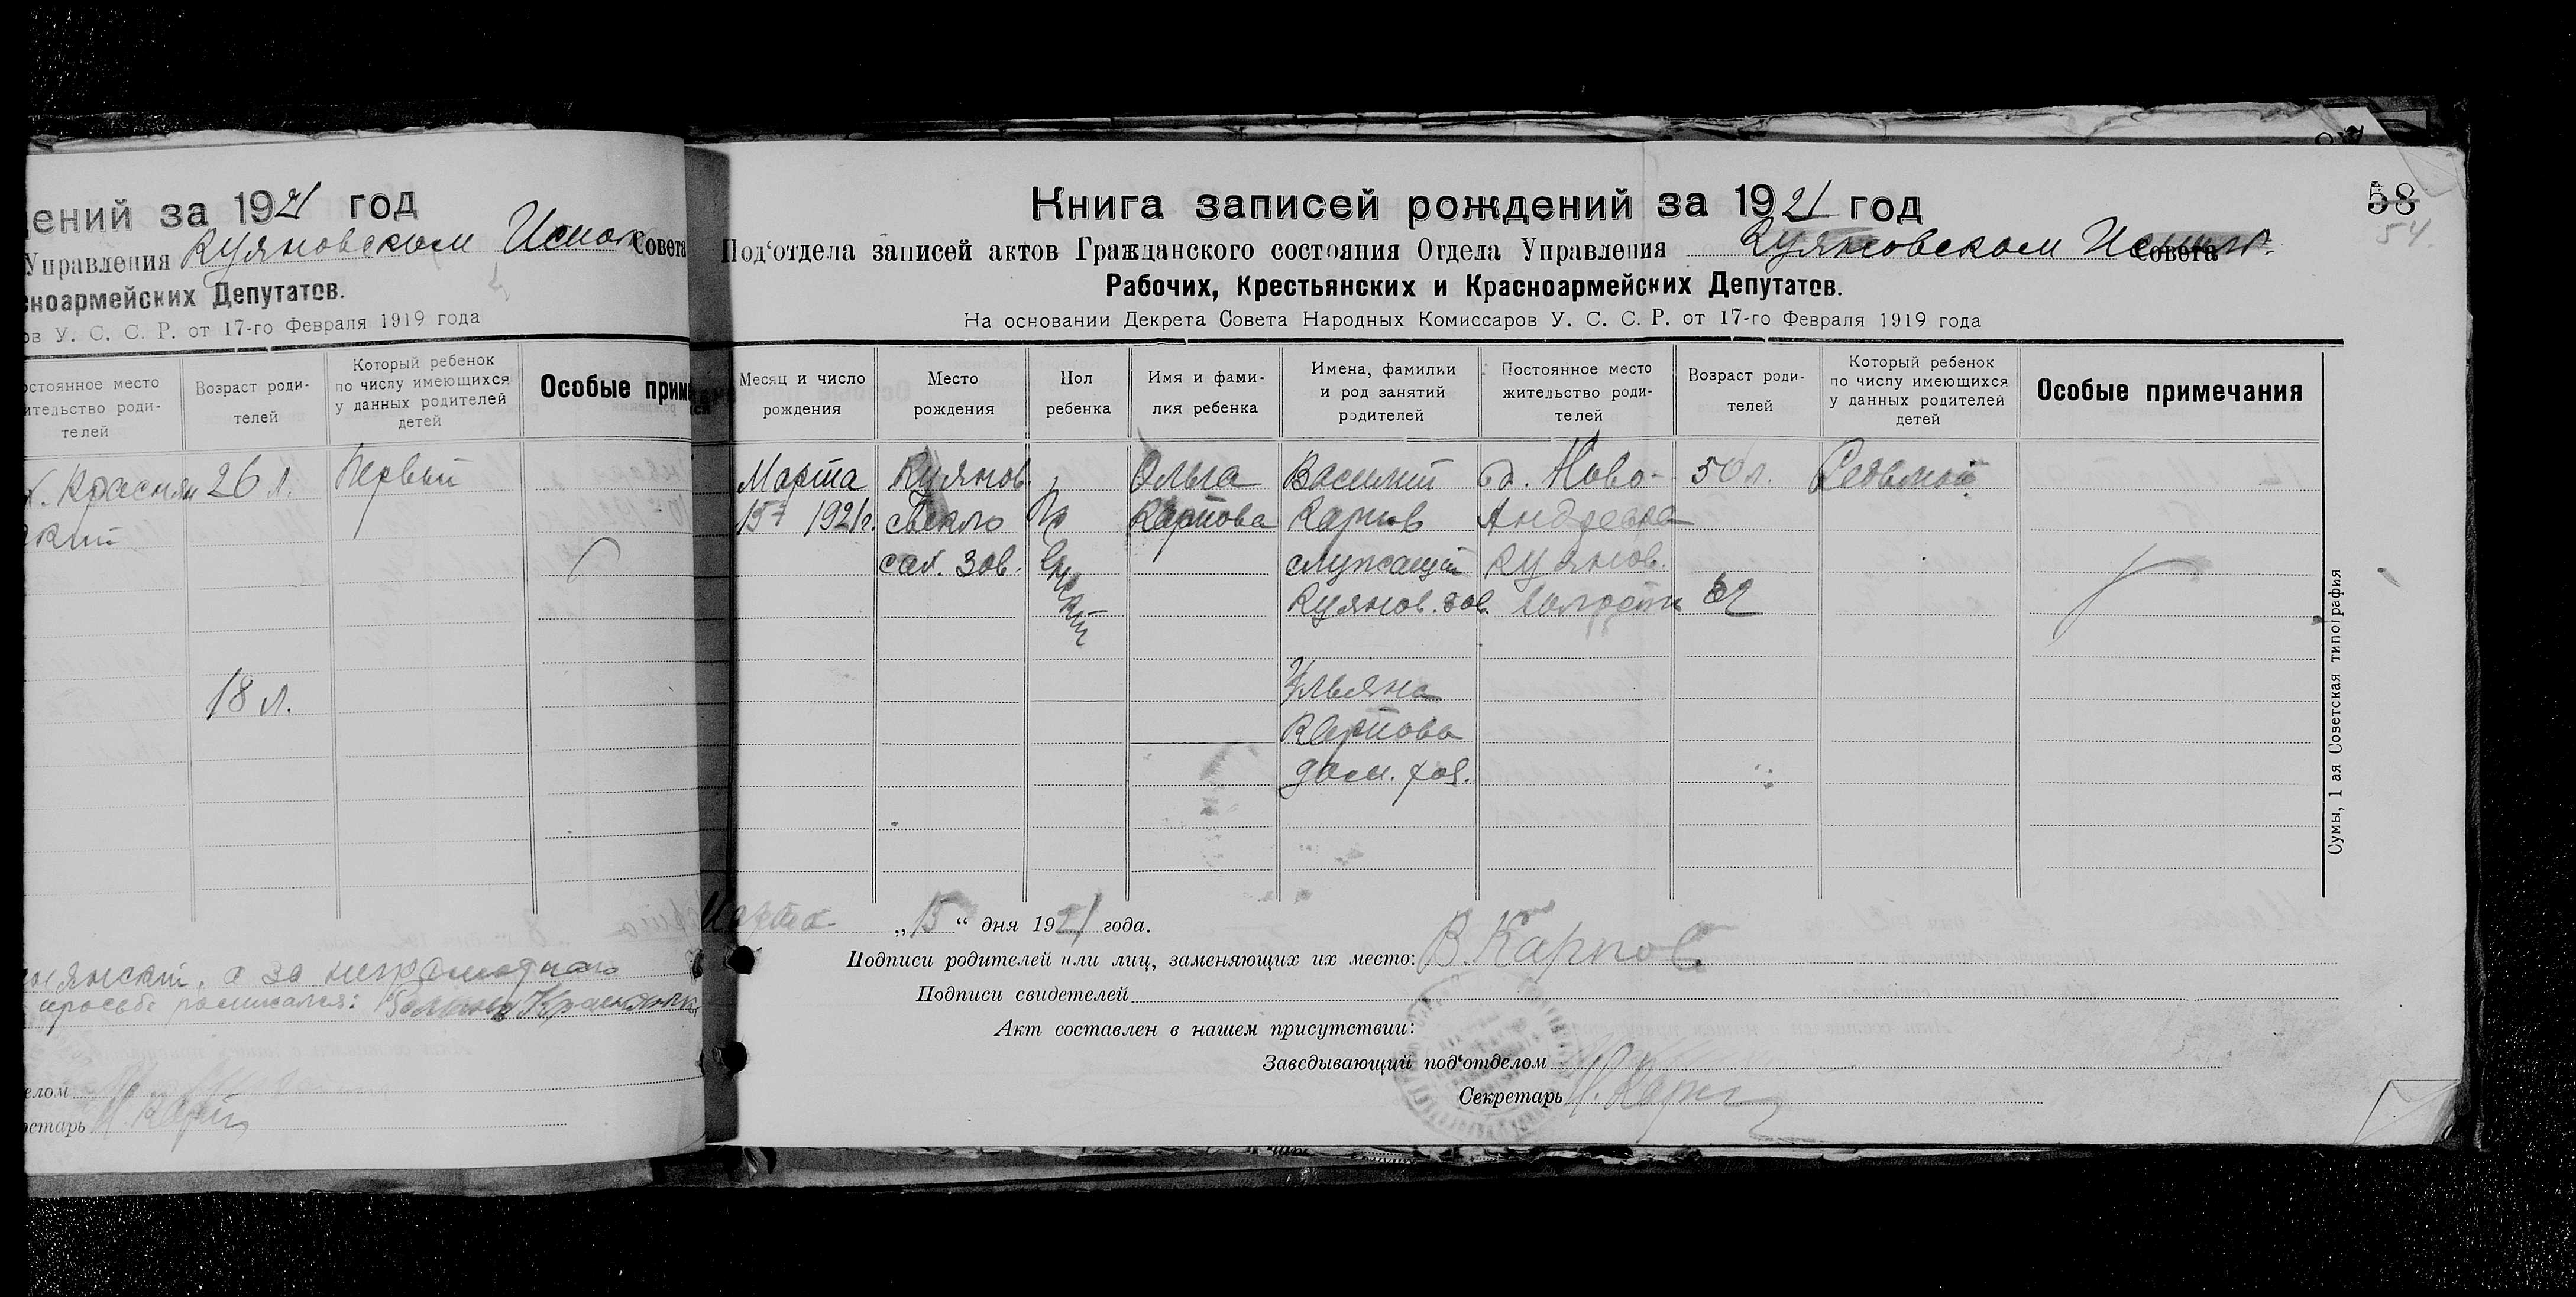 дений за 1921 год
Управления Куяновском Испол Совета
сноармейских Депутатов.
ов У. С. С. Р. от 17-го Февраля 1919 года
остоянное место
ительство роди-
телей
Возраст роди-
телей
Который ребенок
по числу имеющихся
у данных родителей
детей
Особые приме
26 л.
Первый
18 л.
а за неграмотного
просьбе расписался:
елом
ретарь
58
54.
Книга записей рождений за 1921 год
Под‘отдела записей актов Гражданского состояния Отдела Управления Куяновском Совета
Рабочих, Крестьянских и Красноармейских Депутатов.
На основании Декрета Совета Народных Комиссаров У. С. С. Р. от 17-го Февраля 1919 года
Месяц и число
рождения
Место
рождения
Пол
ребенка
Имя и фами-
лия ребенка
Имена, фамилии
и род занятий
родителей
Постоянное место
жительство роди-
телей
Возраст роди-
телей
Который ребенок
по числу имеющихся
у данных родителей
детей
Особые примечания
Марта
15 1921 г.
Куянов.
свекло
сах. зов.
Женский
Ольга
Карпова
Василий
Карпов
служащий
Куянов. зов.
Ульяна
Карпова
дом. хоз.
д. Ново-
Андреевка
Куянов.
волости
50 л.
Седьмой
Марта „15“ дня 1921 года.
Подписи родителей или лиц, заменяющих их место: В. Карпов
Подписи свидетелей
Акт составлен в нашем присутствии:
Заведывающий под‘отделом
Секретарь
Сумы, 1 ая Советская типография